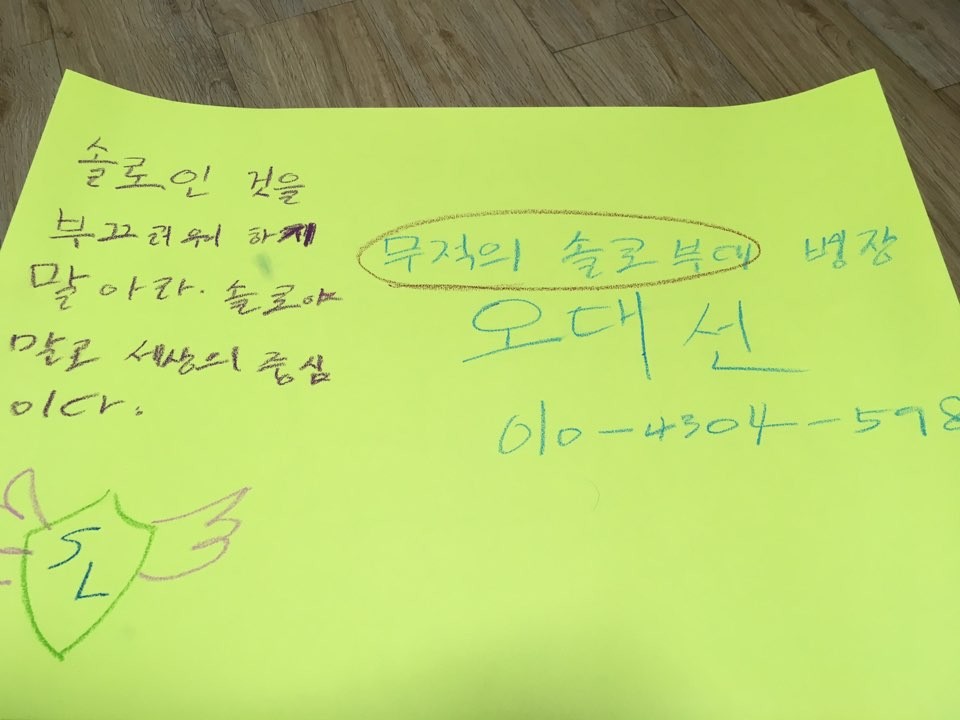 솔로인 것을
부끄러워 하지
말아라. 솔로야
말로 세상의 중심
이다.
무적의 솔로부대 병장
오대선
010-4304-598
S
L